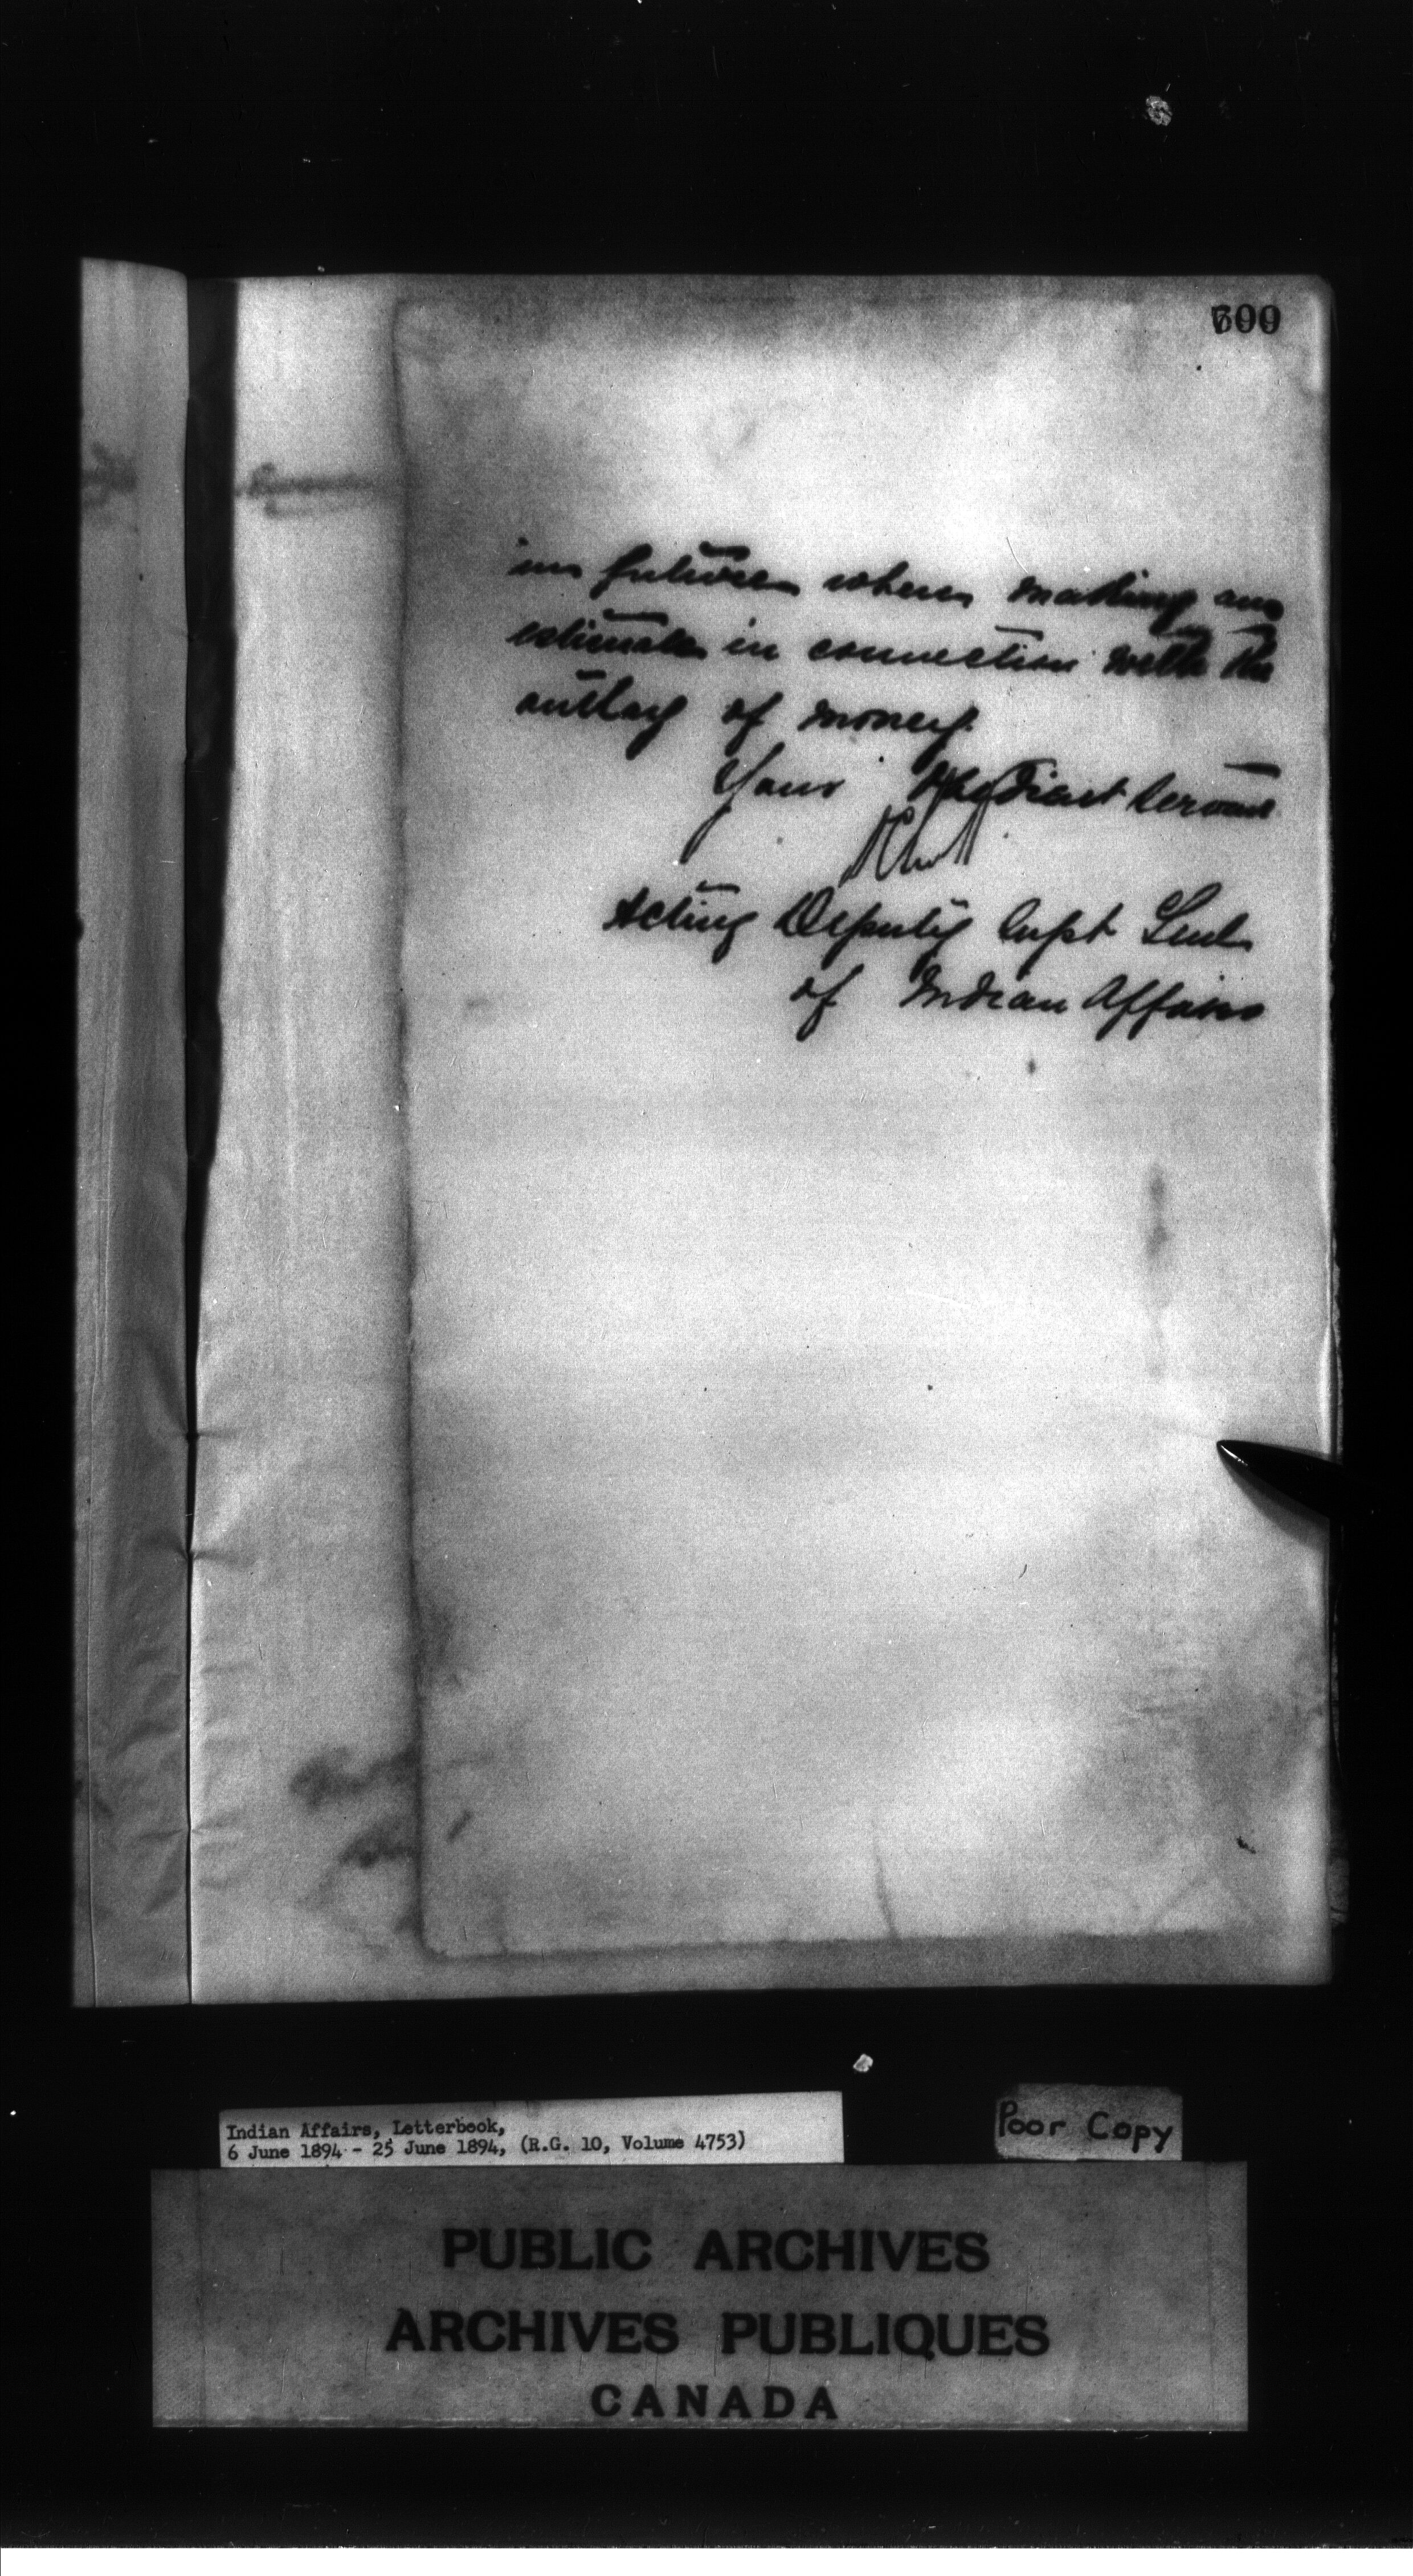 in future when making an
estimate in connection with the
outlay of money.
Your Obedient Servant
Acting Deputy Supt Genl.
of Indian Affairs
Indian Affairs, Letterbook,
6 June 1894 - 25 June 1894, (R.G. 10, Volume 4753)
Poor Copy
PUBLIC ARCHIVES
ARCHIVES PUBLIQUES
CANADA